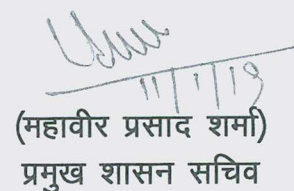 11/1/19
(महावीर प्रसाद शर्मा)
प्रमुख शासन सचिव